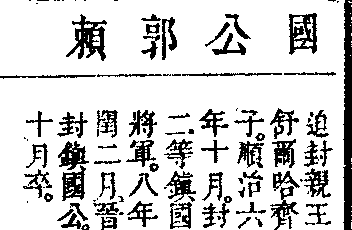 國公郭賴
追封親王
舒爾哈齊
子。順治六
年十月。封
二等鎮國
將軍。八年
閏二月。晉
封鎮國公。
十月卒。